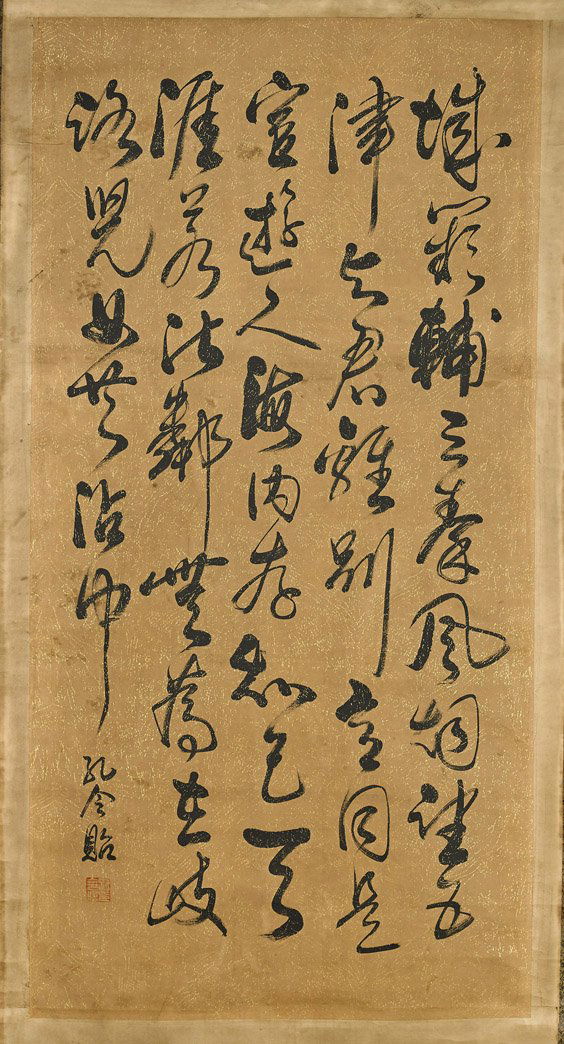 城闕輔三秦風烟望五
津与君離別意同是
宦遊人海内存知己天
涯若比鄰無為在歧
路兒女共沾巾
孔令貽